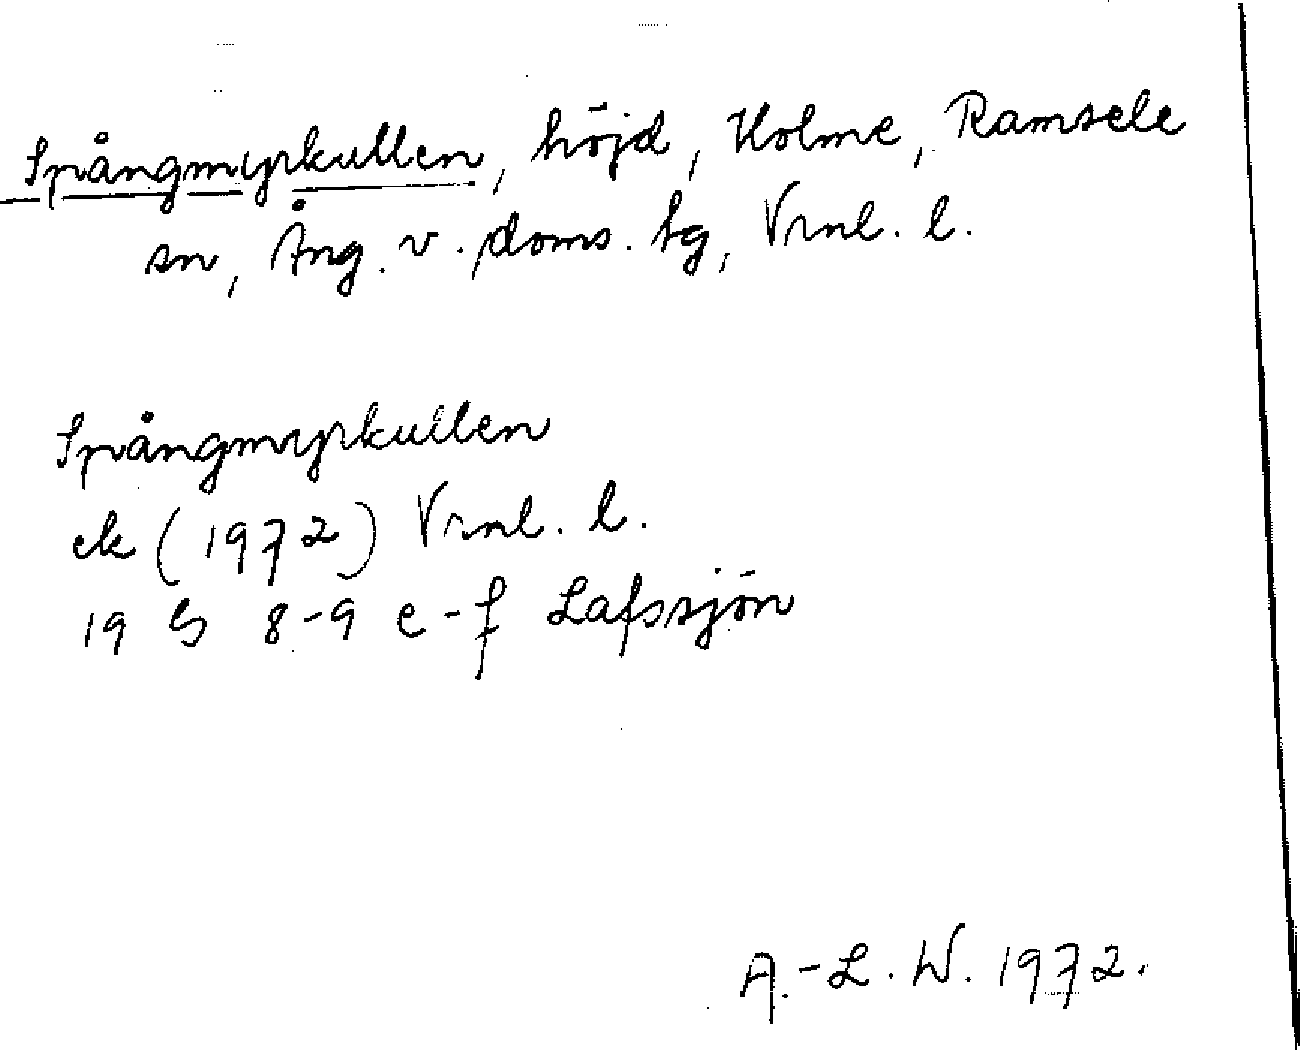 Spångmyrkullen, höjd, Holme, Ramsele
sn, Ång. v. doms. tg, Vrnl. l.
Spångmyrkullen
ek (1972) Vrnl. l.
19 G 8-9 e-f Lafssjön
A.-L. W. 1972.